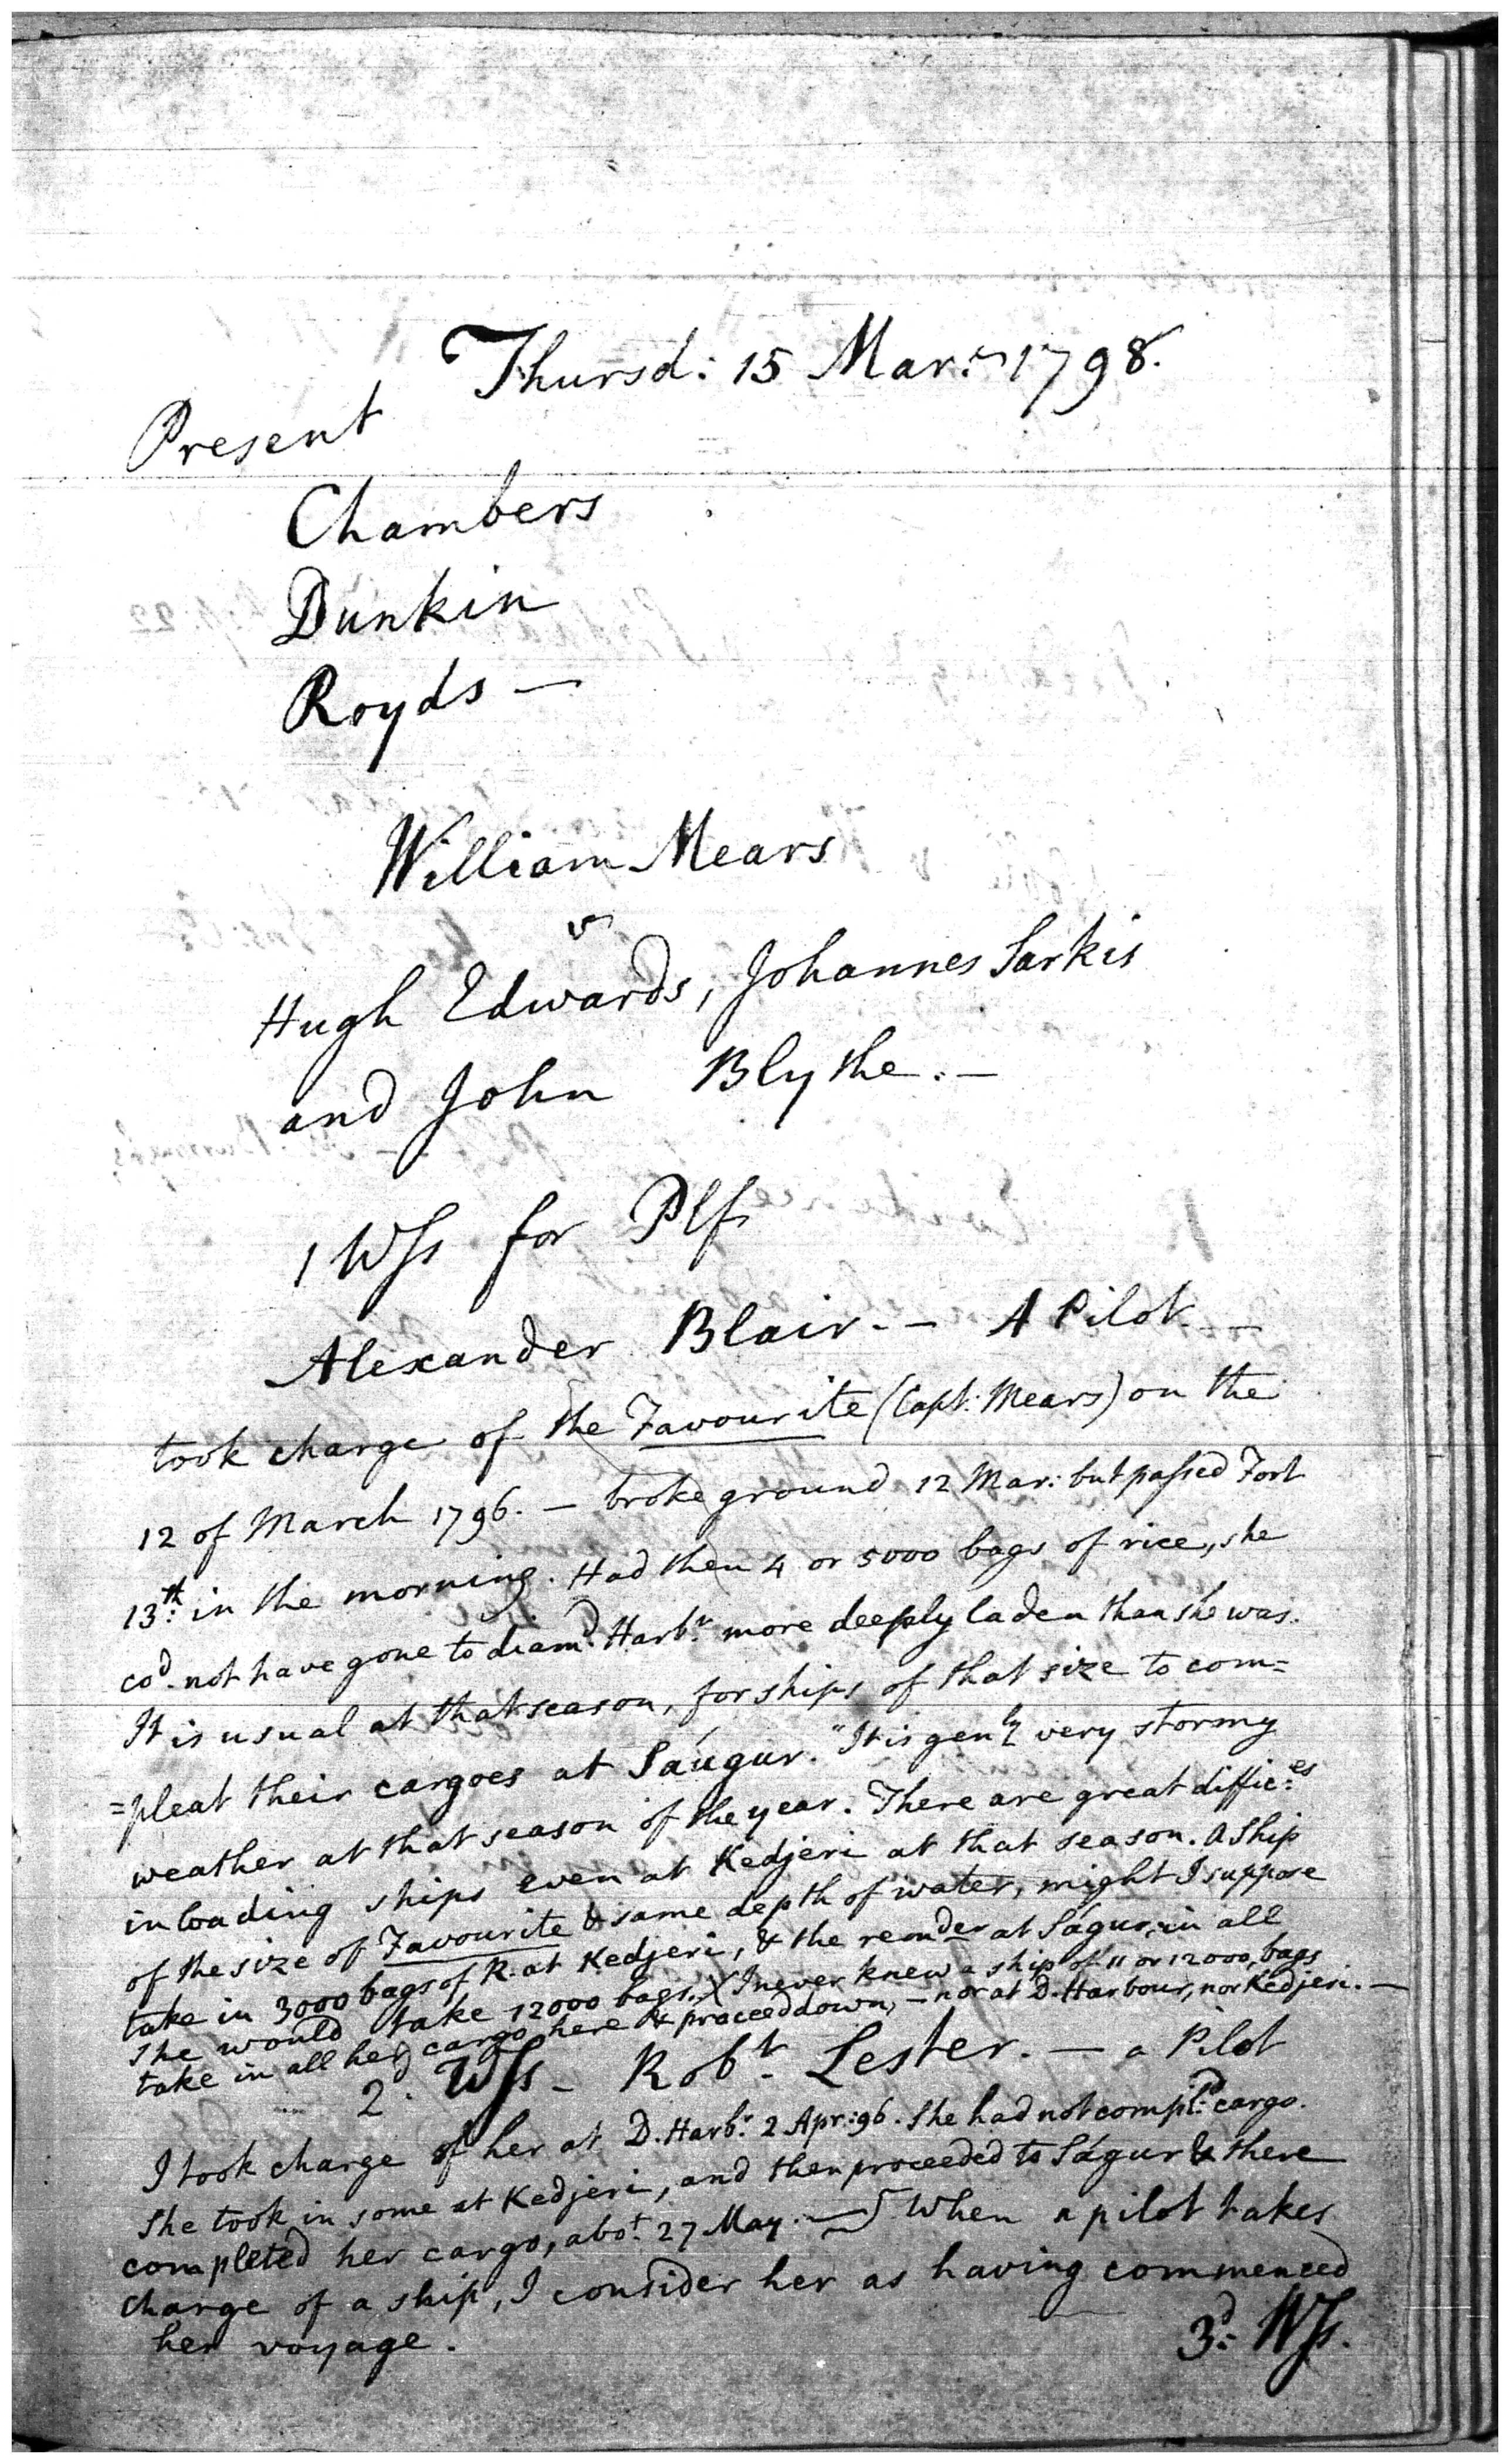 Thursd: 15 Mar: 1798.
Present
Chambers
Dunkin
Royds —
William Mears
v
Hugh Edwards, Johannes Sarkis
and John Blythe. —
1 Wss for Plf
Alexander Blair. — A Pilot —
took charge of the Favourite (Capt: Mears) on the
12 of March 1796. — broke ground 12 Mar: but passed Fort
13th: in the morning. Had then 4 or 5000 bags of rice, she
cod. not have gone to diamd. Harbr. more deeply laden than she was.
It is usual at that season, for ships of that size to com=
=pleat their cargoes at Sáugur. "It is genly very stormy
weather at that season of the year. There are great diffices:
in loading ships even at Kedjeri at that season. A Ship
of the size of Favourite & same depth of water, might I suppose
take in 3000 bags of R. at Kedjeri, & the remder at Ságur, in all
she would take 12000 bags. X I never knew a ship of 11 or 12000, bags
take in all her cargo here & proceed down, — nor at D. Harbour, nor Kedjeri. —
2d. Wss — Robt. Lester. — a Pilot
I took charge of her at D. Harbr. 2 Apr: 96. She had not compld: cargo.
She took in some at Kedjeri, and then proceeded to Ságur & there
completed her cargo, abot. 27 May. — When a pilot takes
charge of a ship, I consider her as having commenced
her voyage.
3d: Wss.